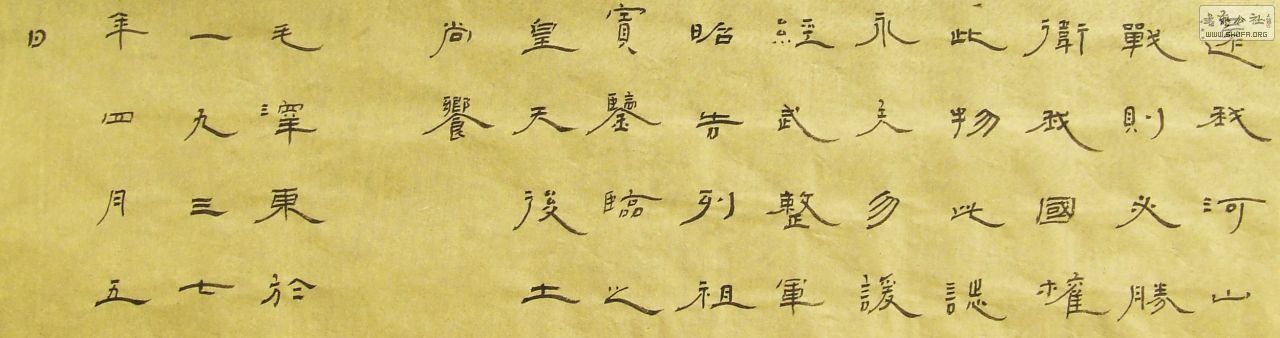 我河山
戰則必勝
衛我國權
此物此誌
永矢勿諼
經武整軍
昭告列祖
實鑒臨之
皇天後土
尚饗
毛澤東於
一九三七
年四月五
日
WWW.SHUFA.ORG